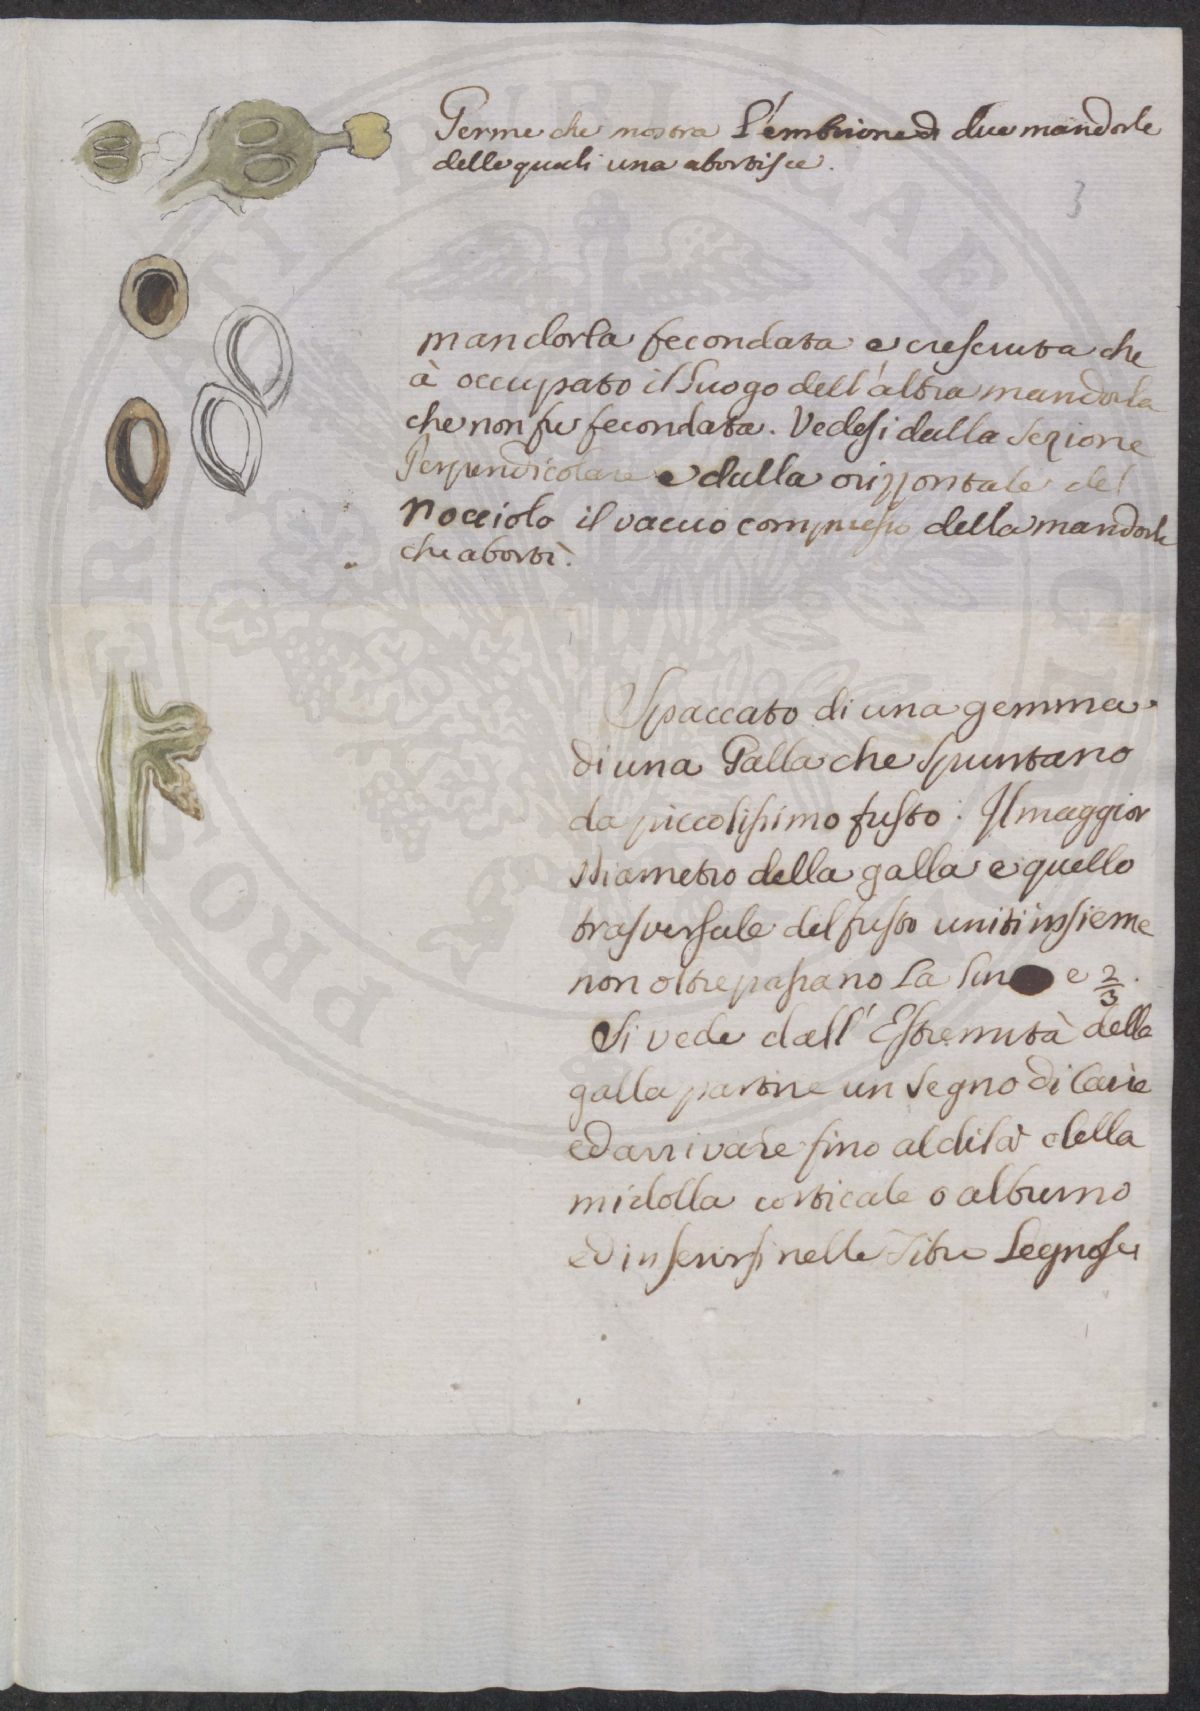 Germe che nostra l'embrione di due mandorle
delle quali una abortisce.
3
mandorla fecondata e cresciuta che
à occupato il luogo dell'altra mandorla
che non fu fecondata. Vedesi dalla sezione
Perpendicolare e dalla orizzontale del
Nocciolo il vacuo compreso della mandorla
che abortì.
Spaccato di una gemma
di una Galla che spuntano
da piccolissimo fusto. Il maggior
diametro della galla e quello
trasversale del fusto uniti insieme
non oltrepassano la lin e 2/3.
Si vede dall'Estremità della
galla partire un segno di Carie
ed arrivare fino al di là della
midolla corticale o alburno
ed inserirsi nelle Fibre Legnose
PROPRIETATIS PUBLICAE